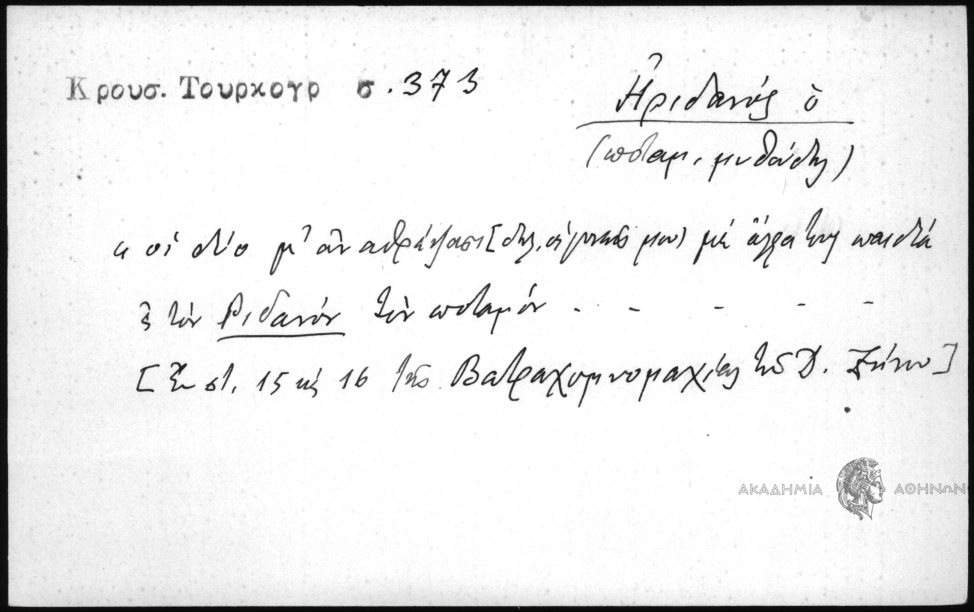 Κρουσ. Τουρκογρ σ. 373
Ἠριδανός ὁ
(ποταμ. μυθώδης)
κ οἱ δύο μ' ἀναθράψασι [δηλ. οἱ γονεῖς μου] μὲ ἄλλα τους παιδιά
ς τὸν Ριδανόν τὸν ποταμόν - - - - -
[Ἐν στ. 15 κὲ 16 τῆς Βατραχομυομαχίας τοῦ Δ. Ζήνου]
ΑΚΑΔΗΜΙΑ ΑΘΗΝΩΝ